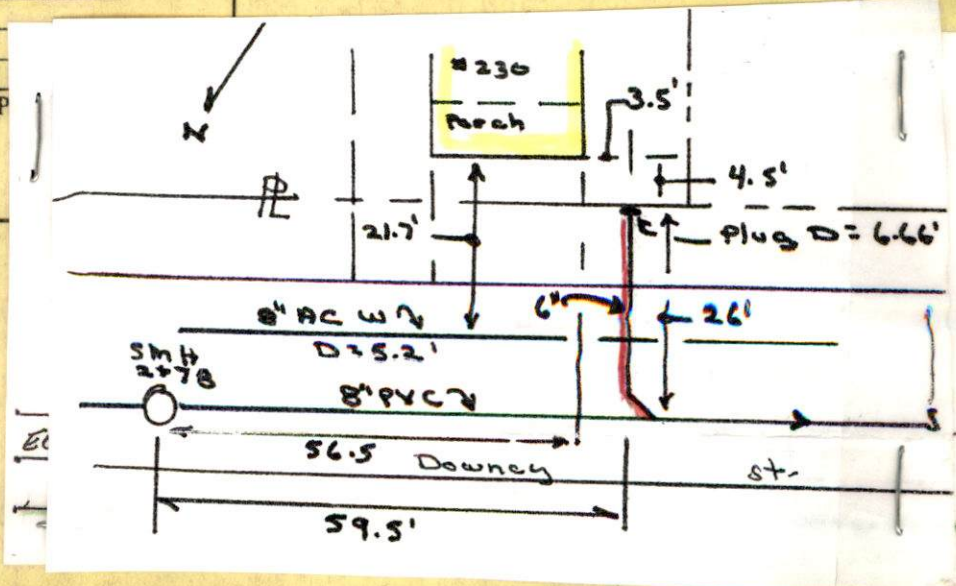 #230
Porch
3.5'
N
4.5'
PL
21.7'
Plug D = 6.66'
8" AC W
6"
26'
D = 5.2'
SMH
2+78
8" PVC
56.5
Downey St.
59.5'